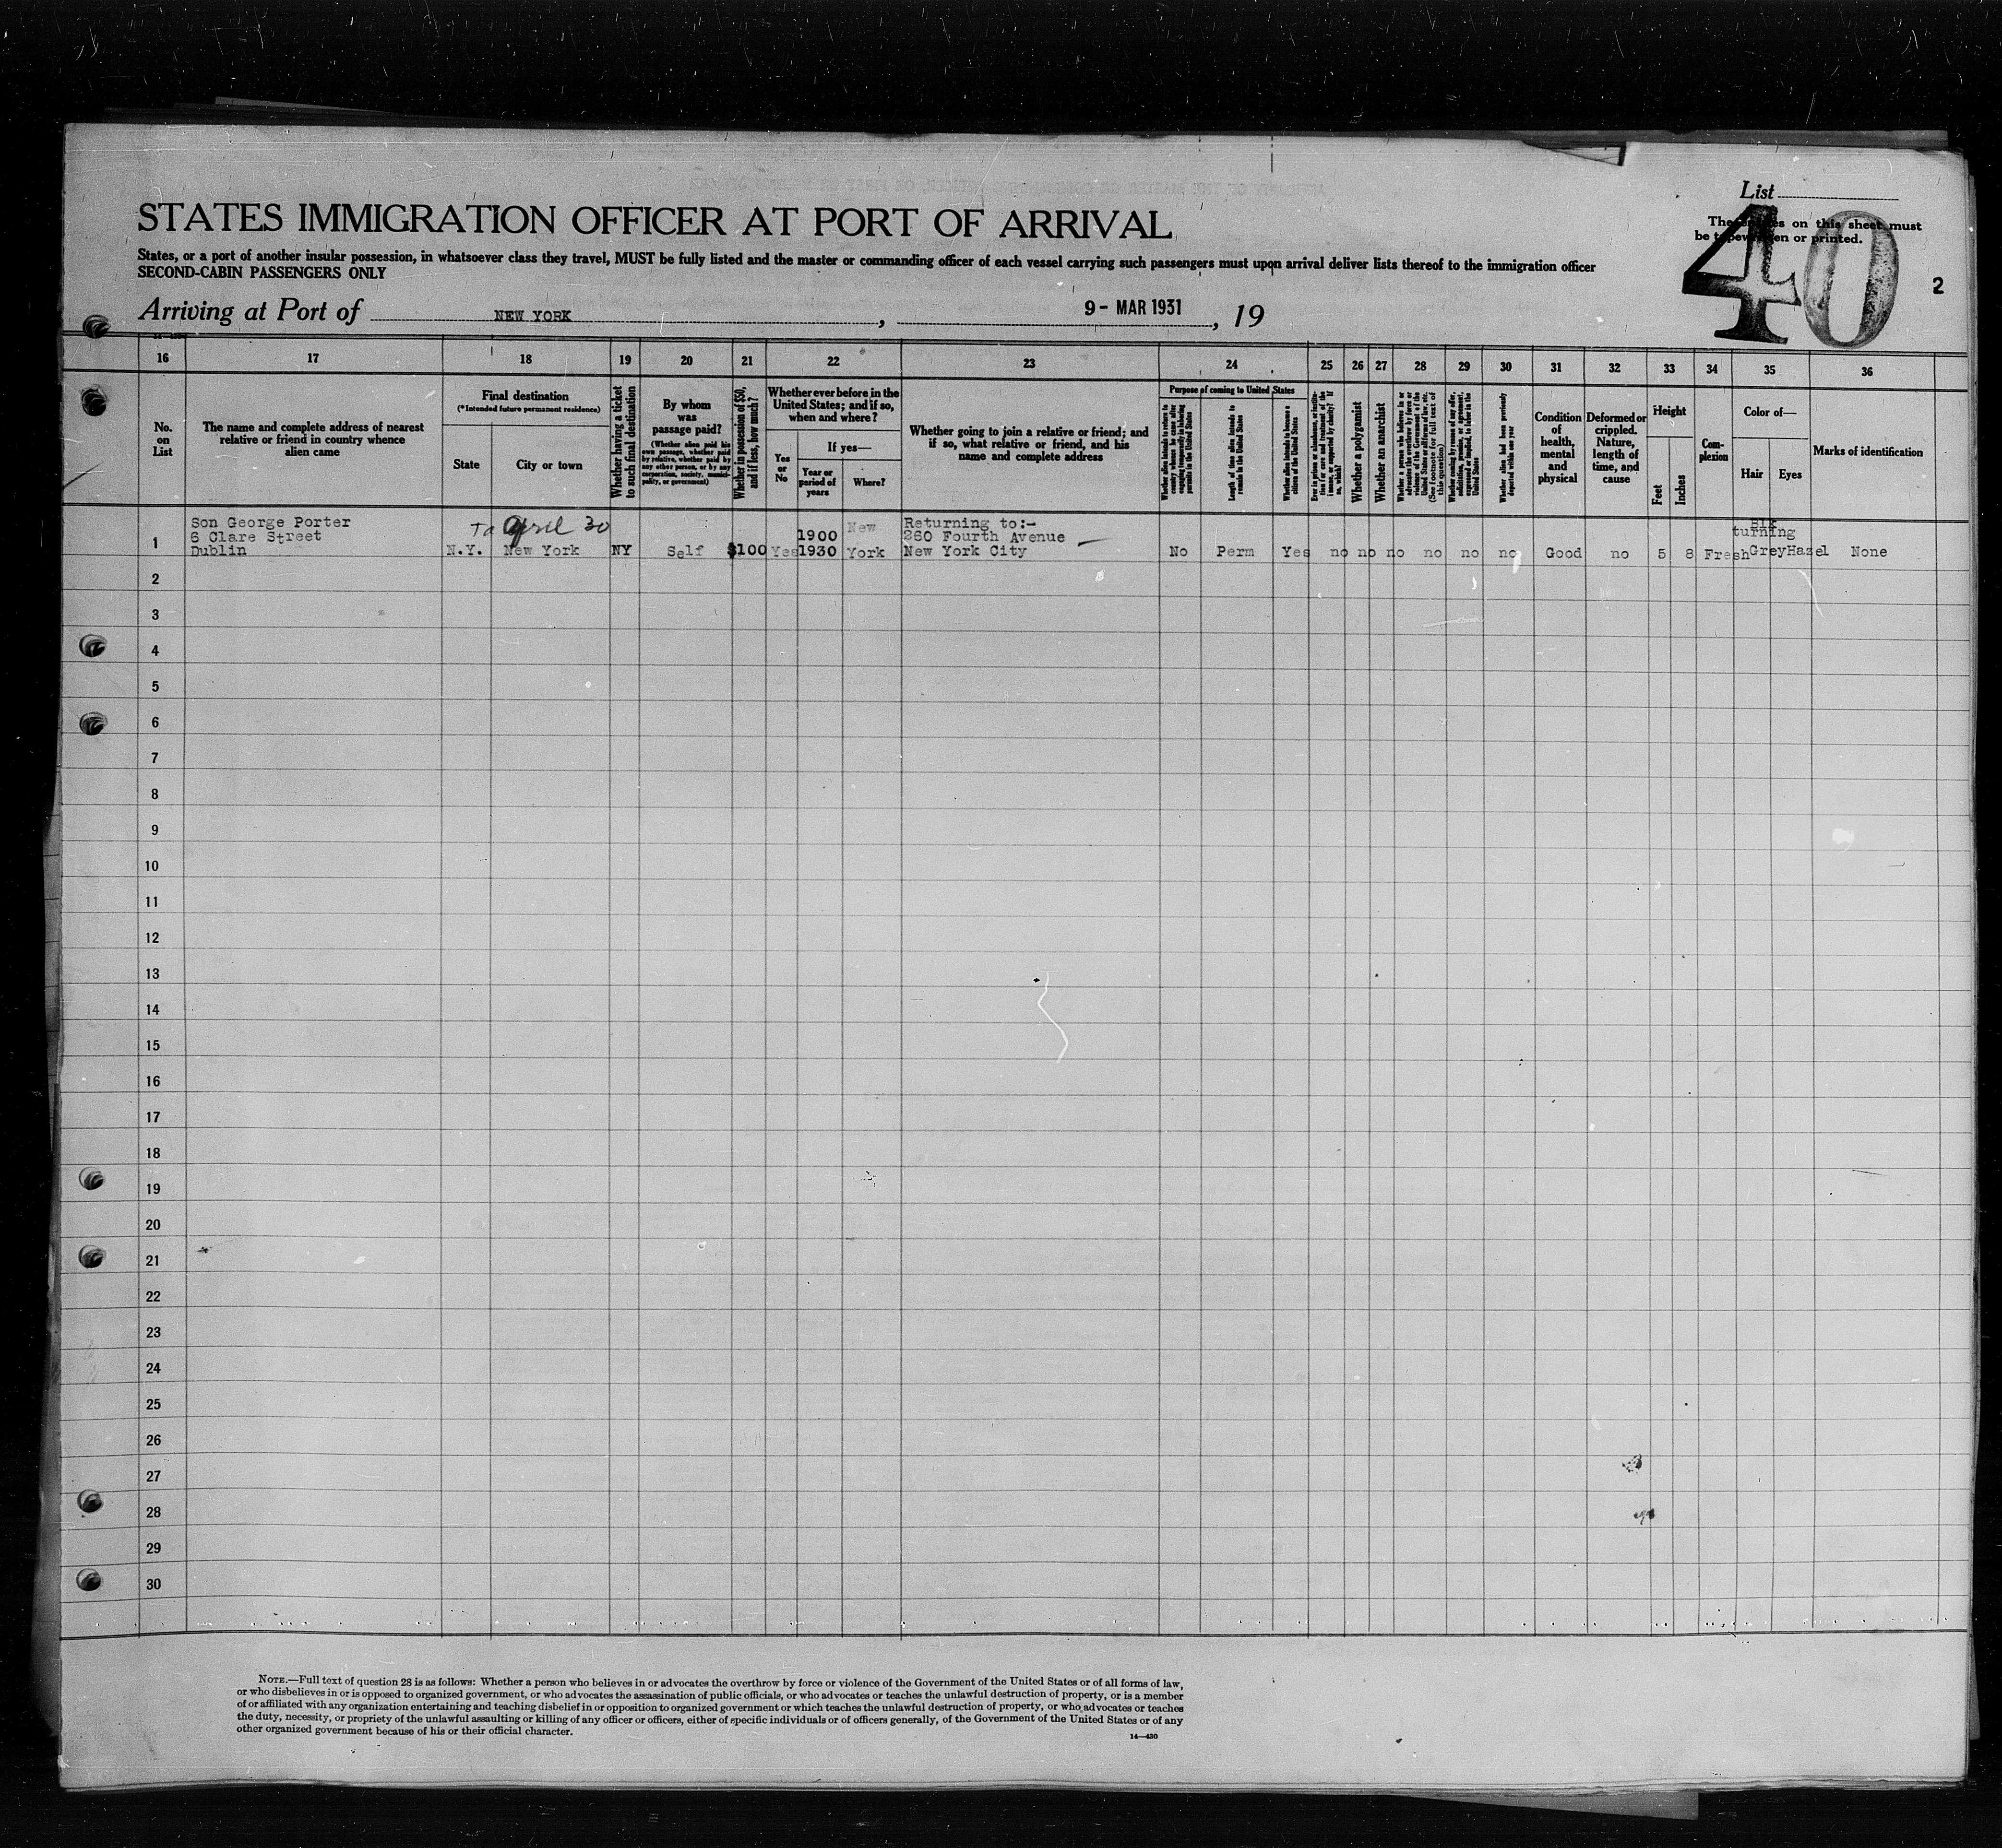 List
These entries on this sheet must
be typewritten or printed.
40
2
STATES IMMIGRATION OFFICER AT PORT OF ARRIVAL
States, or a port of another insular possession, in whatsoever class they travel, MUST be fully listed and the master or commanding officer of each vessel carrying such passengers must upon arrival deliver lists thereof to the immigration officer
SECOND-CABIN PASSENGERS ONLY
Arriving at Port of NEW YORK, 9 - MAR 1931, 19
16 17 18 19 20 21 22 23 24 25 26 27 28 29 30 31 32 33 34 35 36
No.
on
List
The name and complete address of nearest
relative or friend in country whence
alien came
Final destination
(*Intended future permanent residence)
State
City or town
Whether having a ticket
to such final destination
By whom
was
passage paid?
(Whether alien paid his
own passage, whether paid
by relative, whether paid by
any other person, or by any
corporation, society, munici-
pality, or government)
Whether in possession of $50,
and if less, how much?
Whether ever before in the
United States; and if so,
when and where?
Yes
or
No
If yes—
Year or
period of
years
Where?
Whether going to join a relative or friend; and
if so, what relative or friend, and his
name and complete address
Purpose of coming to United States
Whether alien intends to return to
country whence he came after
engaging temporarily in laboring
pursuits in the United States
Length of time alien intends to
remain in the United States
Whether alien intends to become a
citizen of the United States
Ever in prison or almshouse, or institu-
tion for care and treatment of the
insane, or supported by charity? If
so, which?
Whether a polygamist
Whether an anarchist
Whether a person who believes in or
advocates the overthrow by force or
violence of the Government of the
United States or all forms of law, etc.
(See footnote for full text of
this question)
Whether coming by reason of any offer,
solicitation, promise, or agreement,
expressed or implied, to labor in the
United States
Whether alien had been previously
deported within one year
Condition
of
health,
mental
and
physical
Deformed or
crippled.
Nature,
length of
time, and
cause
Height
Feet
Inches
Com-
plexion
Color of—
Hair
Eyes
Marks of identification
1
Son George Porter
6 Clare Street
Dublin
To April 30
N.Y. New York NY Self $100 Yes
1900
1930
New
York
Returning to:-
260 Fourth Avenue
New York City
No Perm Yes no no no no no no Good no 5 8 Fresh
Blk
turning
Grey Hazel None
2
3
4
5
6
7
8
9
10
11
12
13
14
15
16
17
18
19
20
21
22
23
24
25
26
27
28
29
30
NOTE.—Full text of question 28 is as follows: Whether a person who believes in or advocates the overthrow by force or violence of the Government of the United States or of all forms of law,
or who disbelieves in or is opposed to organized government, or who advocates the assassination of public officials, or who advocates or teaches the unlawful destruction of property, or is a member
of or affiliated with any organization entertaining and teaching disbelief in or opposition to organized government or which teaches the unlawful destruction of property, or who advocates or teaches
the duty, necessity, or propriety of the unlawful assaulting or killing of any officer or officers, either of specific individuals or of officers generally, of the Government of the United States or of any
other organized government because of his or their official character.
14—430